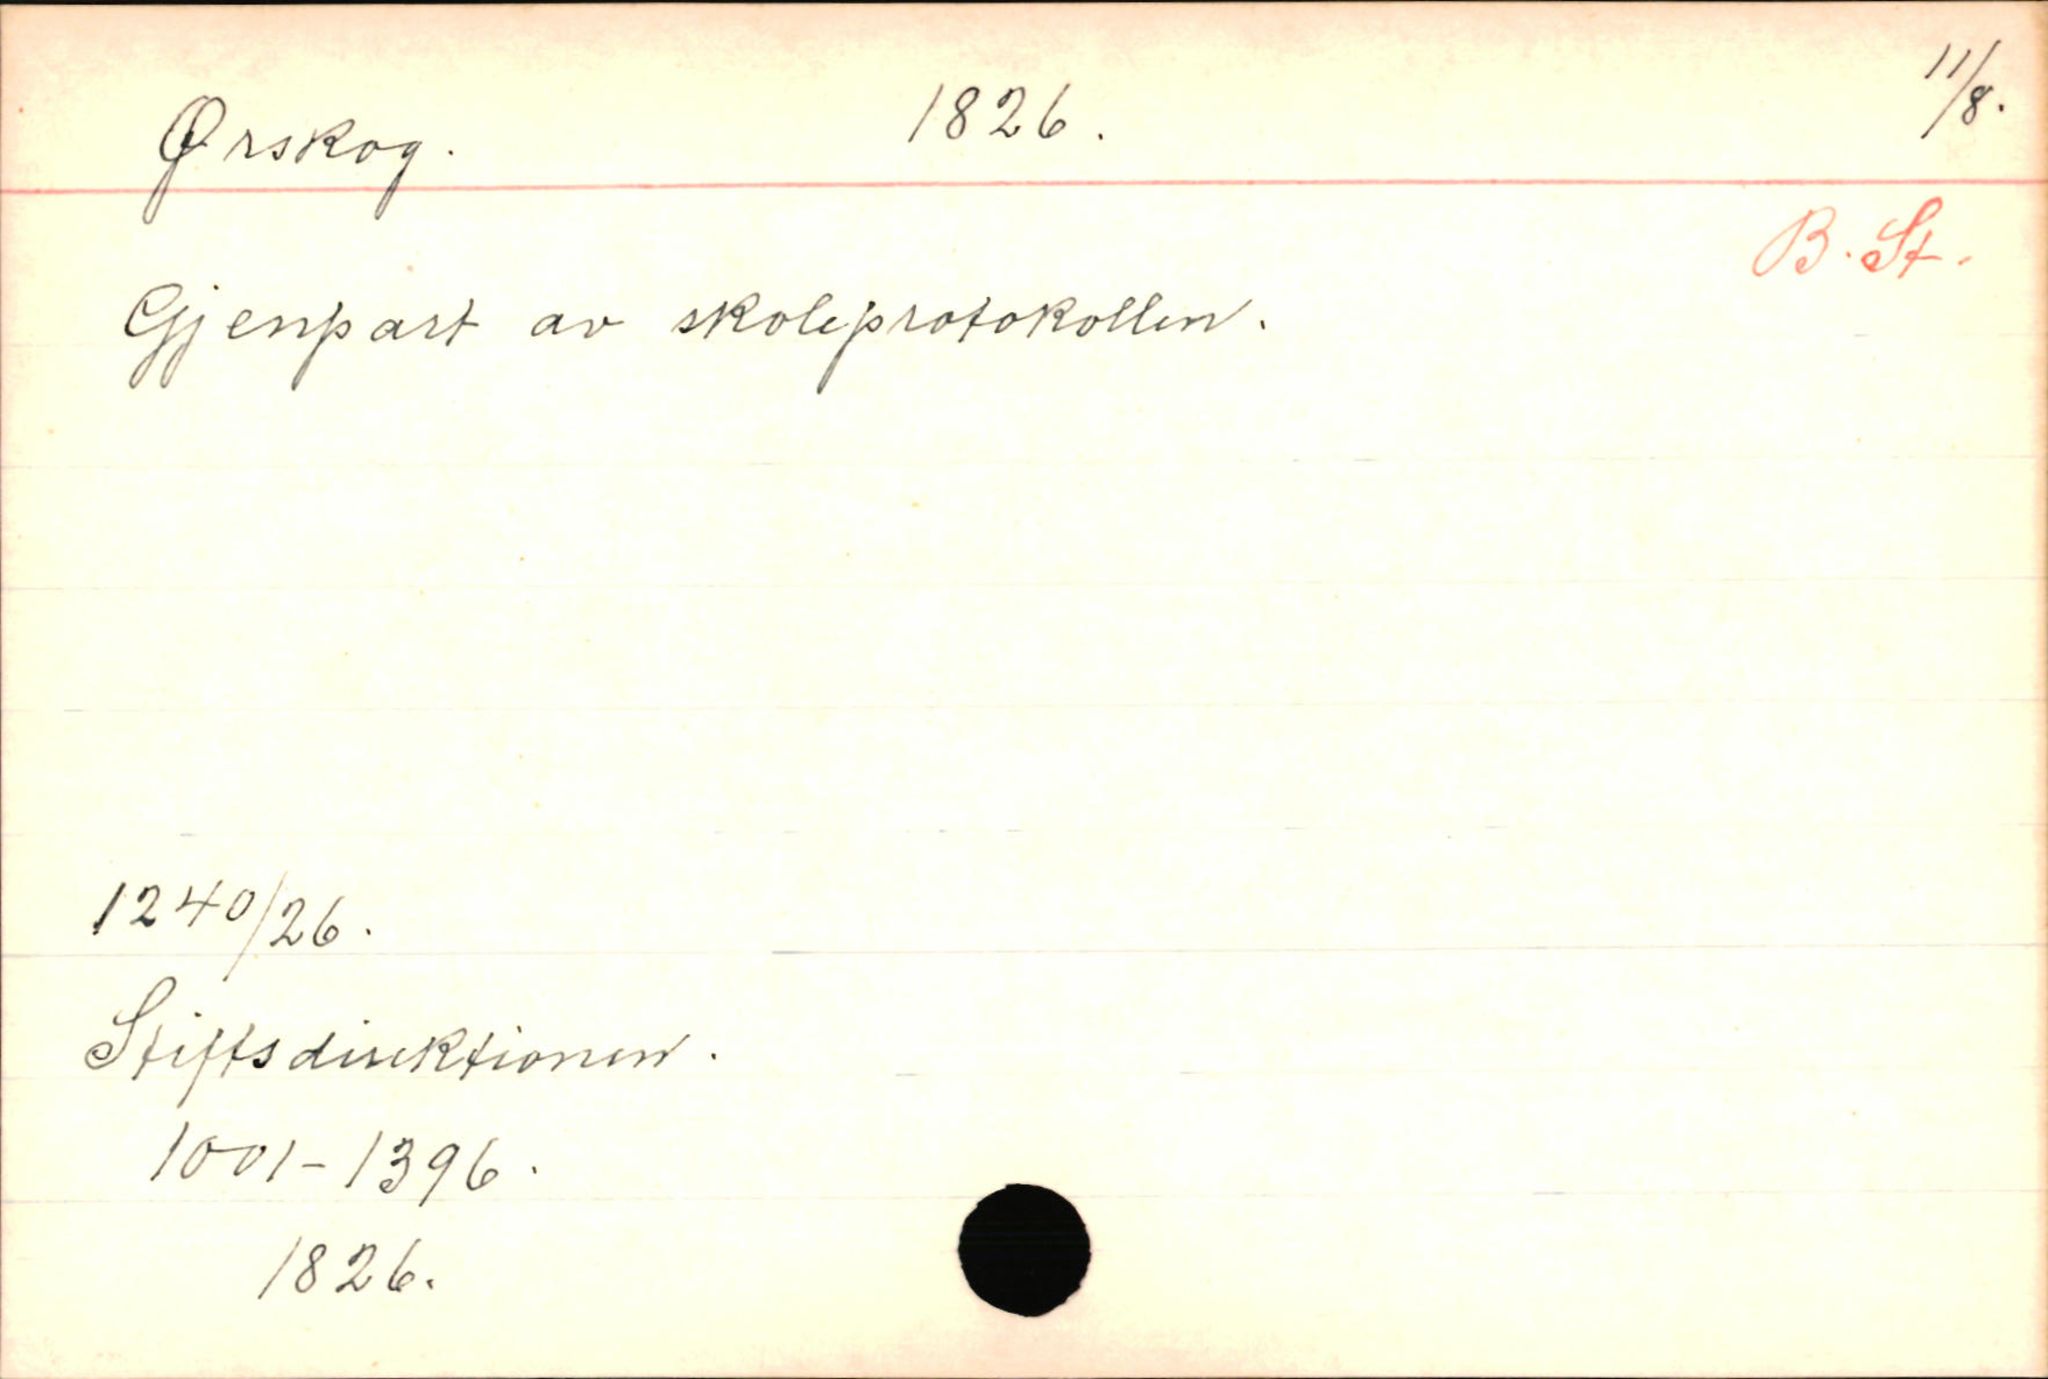 Ørskog. 1826. 11/8.
B. St.
Gjenpart av skoleprotokollen.
1240/26.
Stiftsdirektionen.
1001-1396.
1826.